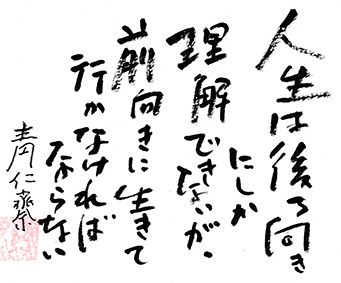 人生は後ろ向き
にしか
理解できないが、
前向きに生きて
行かなければ
ならない